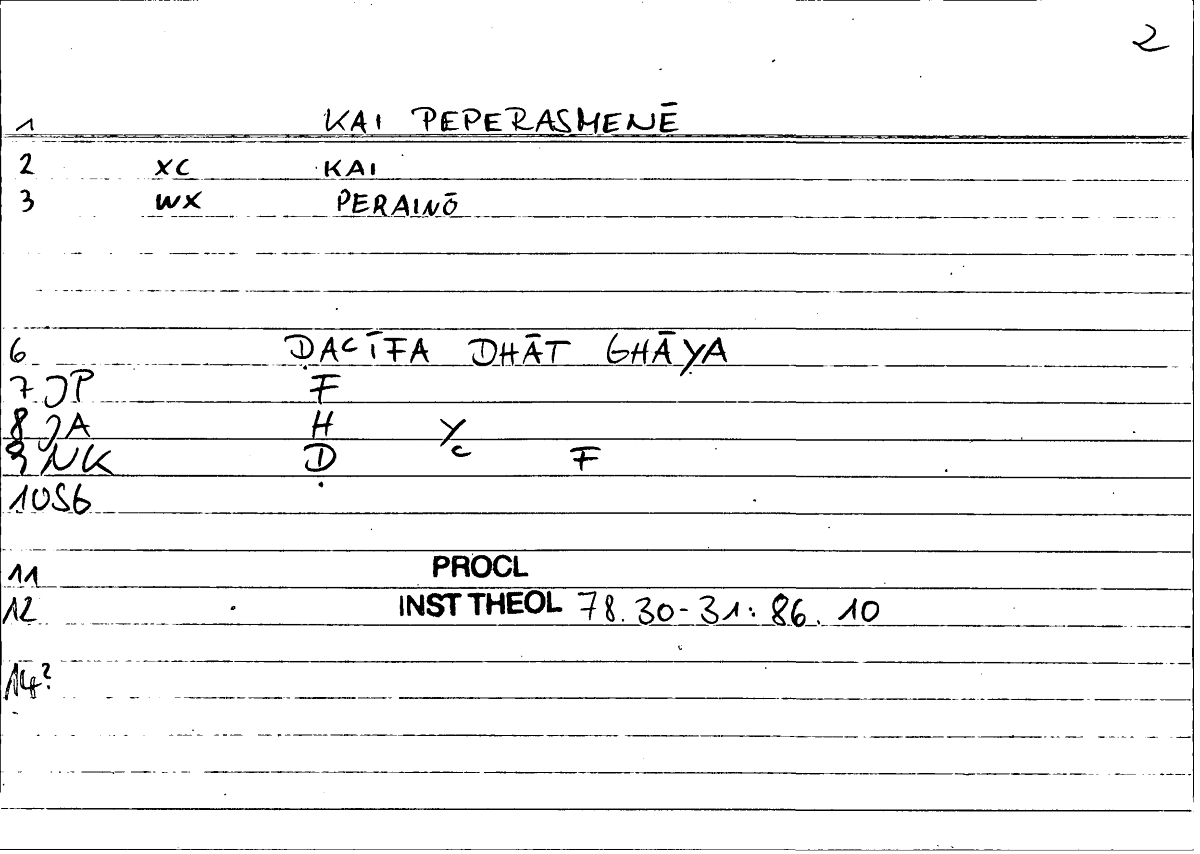 2
1 KAI PEPERASMENĒ
2 XC KAI
3 WX PERAINŌ
6 ḌAᶜĪFA DHĀT GHĀYA
7 JP F
8 JA H Y/c
9 NK Ḍ F
10 SG
11 PROCL
12 INST THEOL 78.30-31: 86.10
14?